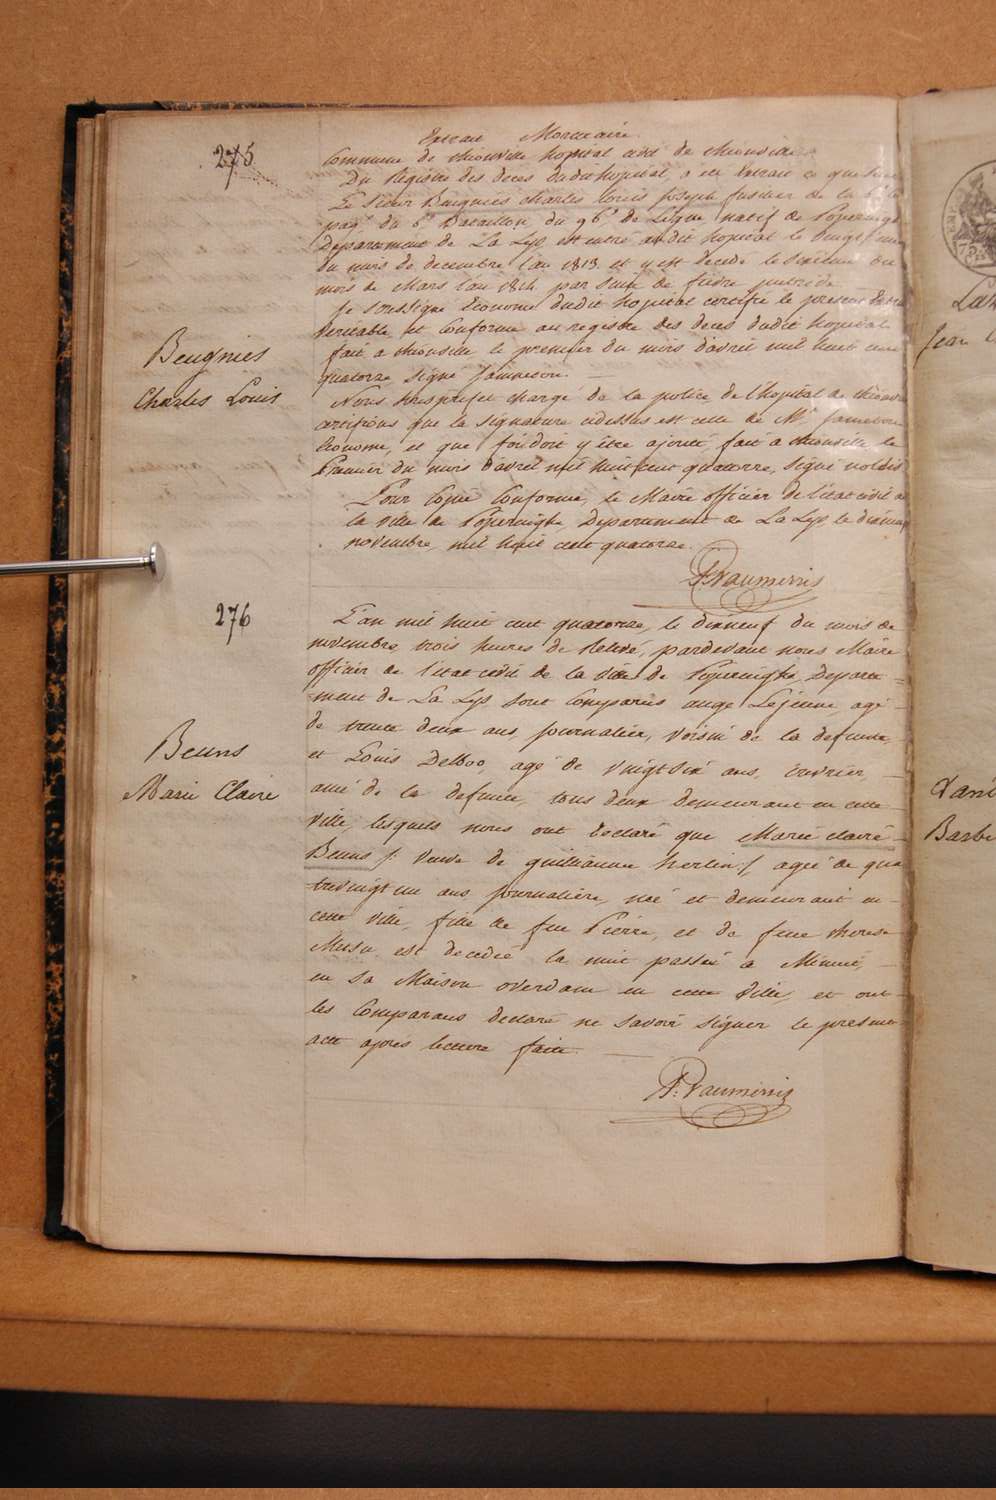 275
Extrait Mortuaire
Commune de thionville hopital civil de thionville
Du Registre des deces dudit hopital, a été Extrait ce que suit
Le sieur Beugnies charles Louis Joseph fusilier de la
pagie du 6e Bataillon du 96e de Ligne natif de Poperinghe
Departement de La Lys, est entré audit hopital le vingt
du mois de decembre l'an 1813 et y est decedé le Sixieme du
mois de Mars l'an 1814 par suite de fievre putride
Je soussigné Econome dudit hopital certifie le present Extrait
Veritable et Conforme au registre des deces dudit hopital
fait a thionville le premier du mois d'avril mil huit cent
quatorze signé
Beugnies
Charles Louis
Nous chargé de la police de l'hopital de thionville
certifions que la signature cidessus est celle de Mr.
Econome, et que foi doit y être ajouté, fait a thionville le
Premier du mois d'avril mil huit cent quatorze, signé
Pour Copie Conforme, le Maire officier de l'état civil de
la ville de Poperinghe, Departement de La Lys, le dixneuf
novembre, mil huit cent quatorze.
276
L'an mil huit cent quatorze, le dixneuf du mois de
novembre, trois heures de Relevé, pardevant nous Maire
officier de l'état civil de la ville de Poperinghe, Departe=
ment de La Lys sont Comparus ange Lejeune, agé
de trente deux ans, journalier, Voisin de la defunte,
et Louis Delboo, agé de vingt six ans, ouvrier,
ami de la defunte, tous deux demeurant en cette
ville, lesquels nous ont declaré que Marie claire
Beuns /: veuve de guillaume herlen :/ agée de qua
trevingt un ans, journalière, née et demeurant en
cette ville, fille de feu Pierre, et de feue therese
est decedée la nuit passée a Minuit,
en sa Maison overdam en cette Ville, et ont
les Comparans declaré ne savoir signer le present
acte après lecture faite.
Beuns
Marie Claire
Jean
Barbe